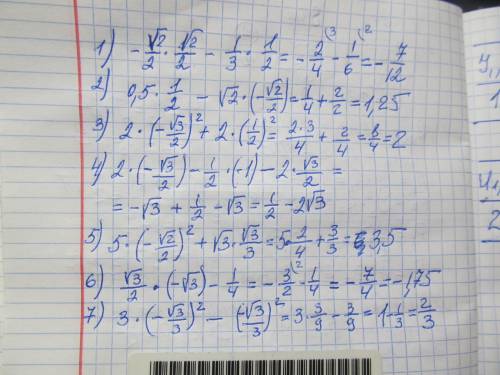 1) -√2/2 · √2/2 - 1/3 · 1/2 = -2/4 (3 - 1/6 (2 = -7/12
2) 0,5 · 1/2 - √2 · (-√2/2) = 1/4 + 2/2 = 1,25
3) 2 · (-√3/2)² + 2 · (1/2)² = 2·3/4 + 2/4 = 8/4 = 2
4) 2 · (-√3/2) - 1/2 · (-1) - 2 · √3/2 =
= -√3 + 1/2 - √3 = 1/2 - 2√3
5) 5 · (-√2/2)² + √3 · √3/3 = 5 · 2/4 + 3/3 = 3,5
6) √3/2 · (-√3) - 1/4 = -3/2 (2 - 1/4 = -7/4 = -1,75
7) 3 · (-√3/3)² - (-√3/3)² = 3 · 3/9 - 3/9 = 1 - 1/3 = 2/3